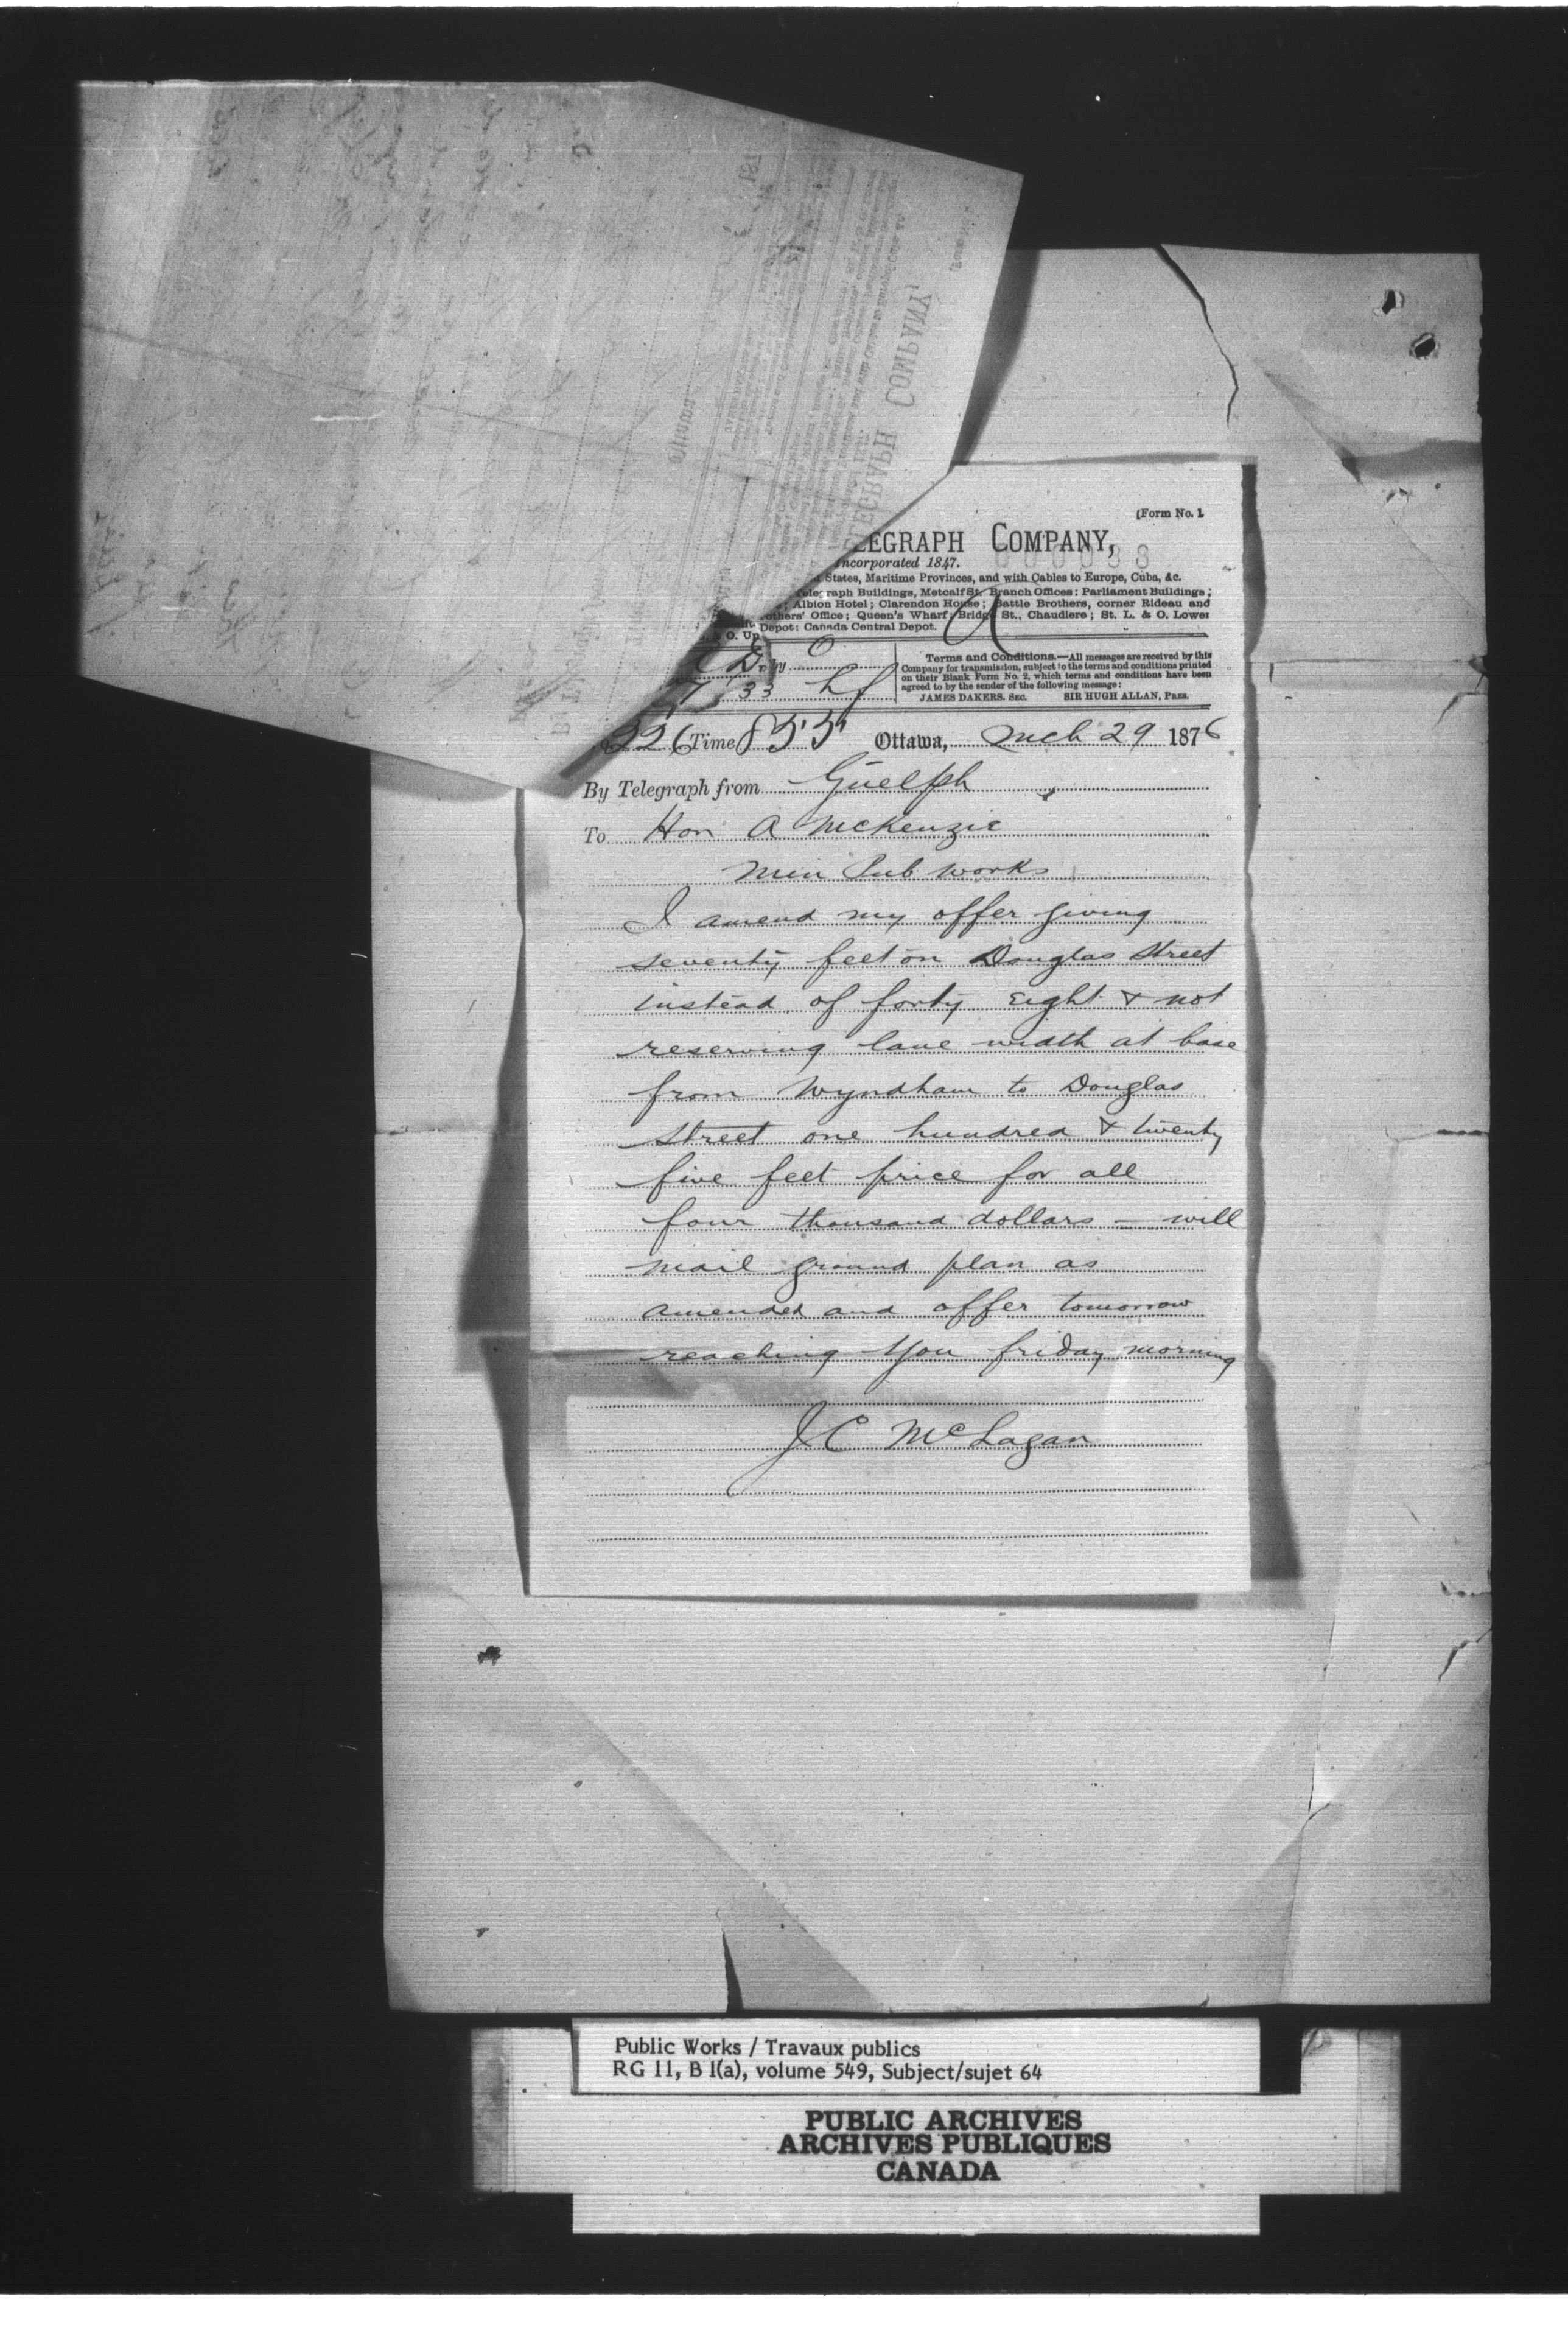 (Form No. 1
LEGRAPH COMPANY,
Incorporated 1847.
000033
States, Maritime Provinces, and with Cables to Europe, Cuba, &c.
Telegraph Buildings, Metcalf St. Branch Offices: Parliament Buildings;
Albion Hotel; Clarendon House; Battle Brothers, corner Rideau and
others' Office; Queen's Wharf; Bridge St., Chaudiere; St. L. & O. Lower
Depot: Canada Central Depot.
O. Up
Terms and Conditions.—All messages are received by this
Company for transmission, subject to the terms and conditions printed
on their Blank Form No. 2, which terms and conditions have been
agreed to by the sender of the following message:
JAMES DAKERS. SEC. SIR HUGH ALLAN, PRES.
33
226 Time 855 Ottawa, Mch 29 1876
By Telegraph from Guelph
To Hon A McKenzie
Min Pub Works
I amend my offer giving
seventy feet on Douglas Street
instead of forty eight & not
reserving lane width at base
from Wyndham to Douglas
street one hundred & twenty
five feet price for all
four thousand dollars — will
mail ground plan as
amended and offer tomorrow
reaching you friday morning
J C McLagan
Public Works / Travaux publics
RG 11, B 1(a), volume 549, Subject/sujet 64
PUBLIC ARCHIVES
ARCHIVES PUBLIQUES
CANADA